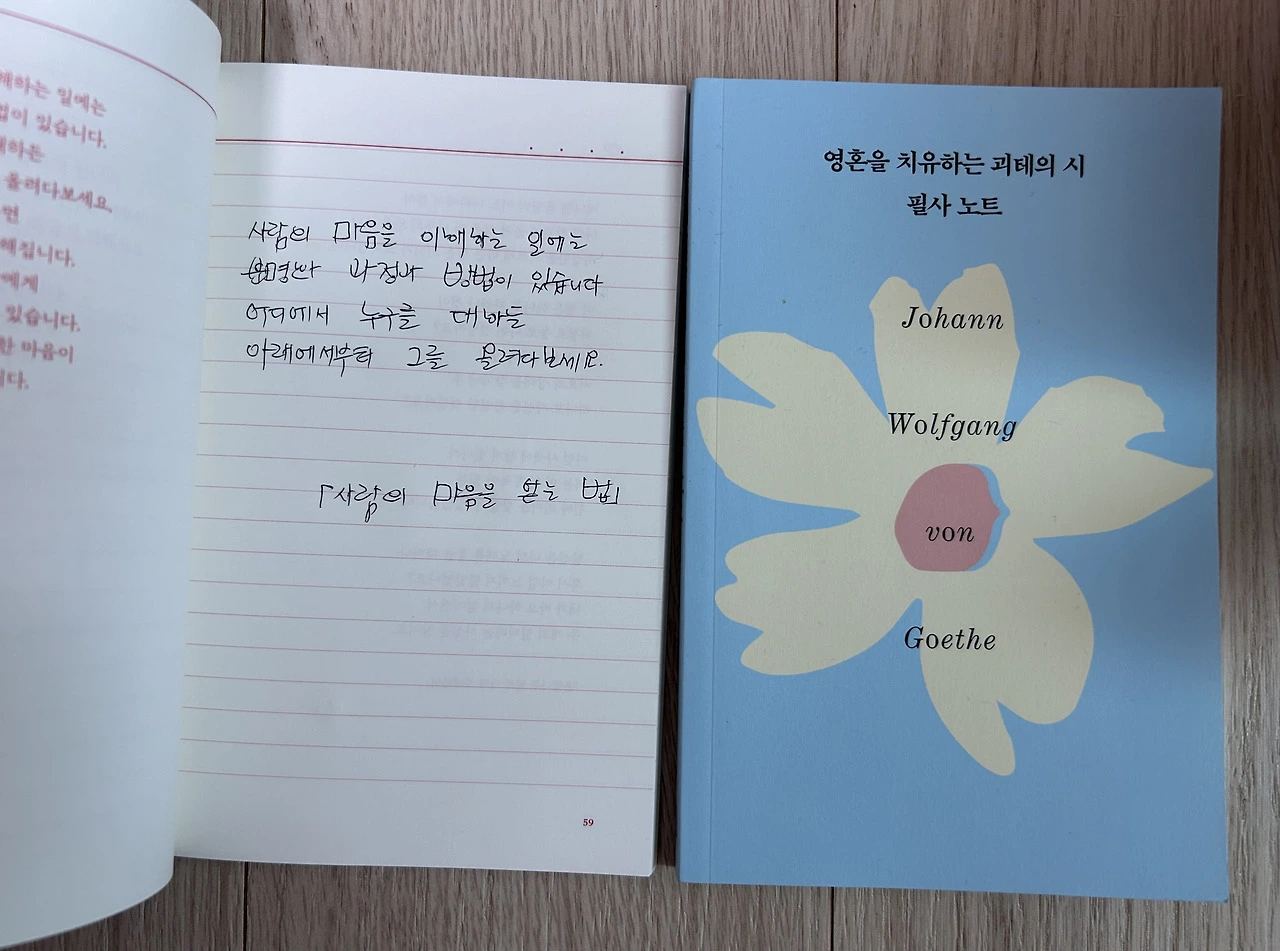 해하는 일에는
법이 있습니다.
대하든
올려다보세요.
면
해집니다.
에게
있습니다.
한 마음이
니다.
사람의 마음을 이해하는 일에는
분명한 과정과 방법이 있습니다
어디에서 누구를 대하든
아래에서부터 그를 올려다보세요.
「사람의 마음을 얻는 법」
59
영혼을 치유하는 괴테의 시
필사 노트
Johann
Wolfgang
von
Goethe